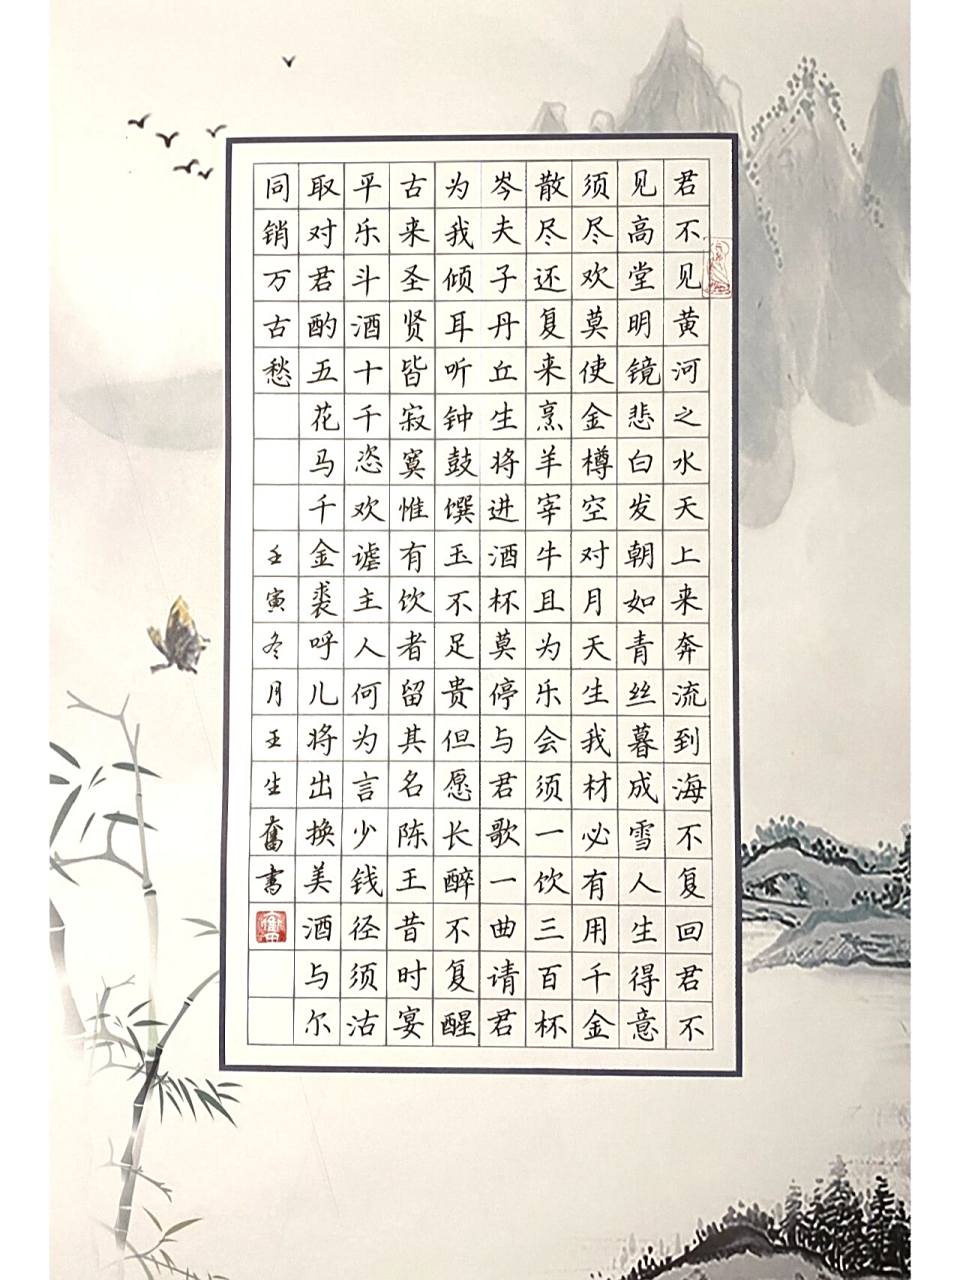 君不见黄河之水天上来奔流到海不复回君不
见高堂明镜悲白发朝如青丝暮成雪人生得意
须尽欢莫使金樽空对月天生我材必有用千金
散尽还复来烹羊宰牛且为乐会须一饮三百杯
岑夫子丹丘生将进酒杯莫停与君歌一曲请君
为我倾耳听钟鼓馔玉不足贵但愿长醉不复醒
古来圣贤皆寂寞惟有饮者留其名陈王昔时宴
平乐斗酒十千恣欢谑主人何为言少钱径须沽
取对君酌五花马千金裘呼儿将出换美酒与尔
同销万古愁
壬寅冬月王生奮書